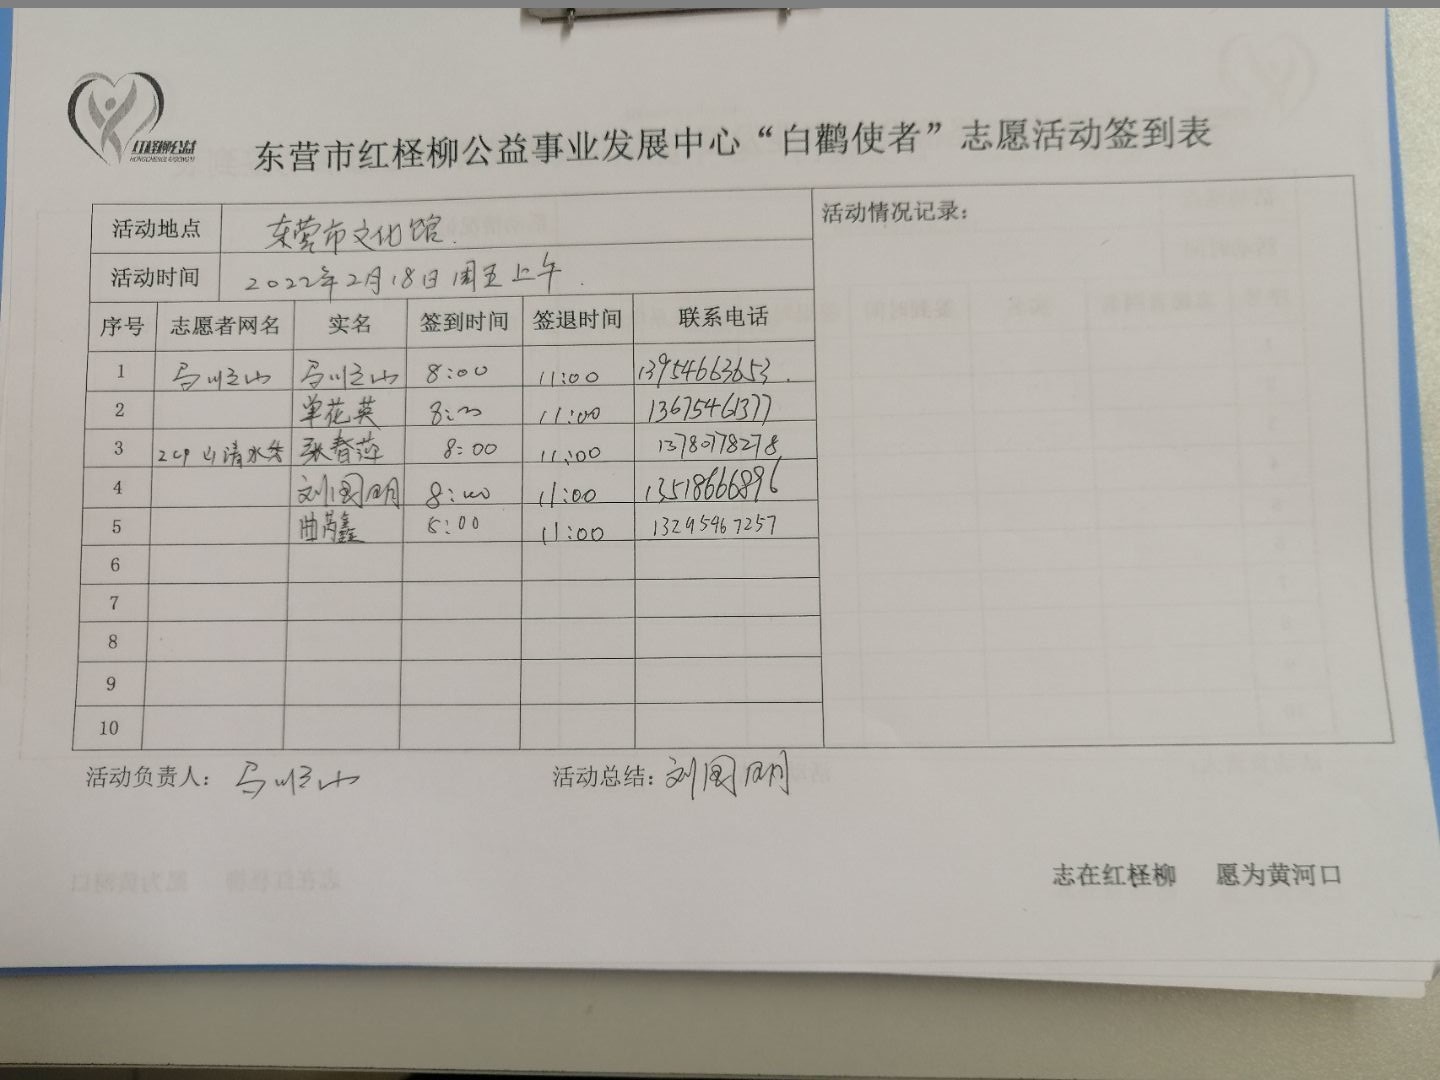 红柽柳公益
HONGCHENGLIUGONGYI
东营市红柽柳公益事业发展中心“白鹳使者”志愿活动签到表
活动地点 东营市文化馆. 活动情况记录：
活动时间 2022年2月18日周五上午.
序号 志愿者网名 实名 签到时间 签退时间 联系电话
1 8:00 11:00 13954663653.
2 单花英 8:00 11:00 13675461377
3 山清水秀 张春萍 8:00 11:00 13780778278
4 刘国明 8:00 11:00 13518666896
5 曲芮鑫 8:00 11:00 13295467257
6
7
8
9
10
活动负责人： 活动总结：刘国明
志在红柽柳 愿为黄河口